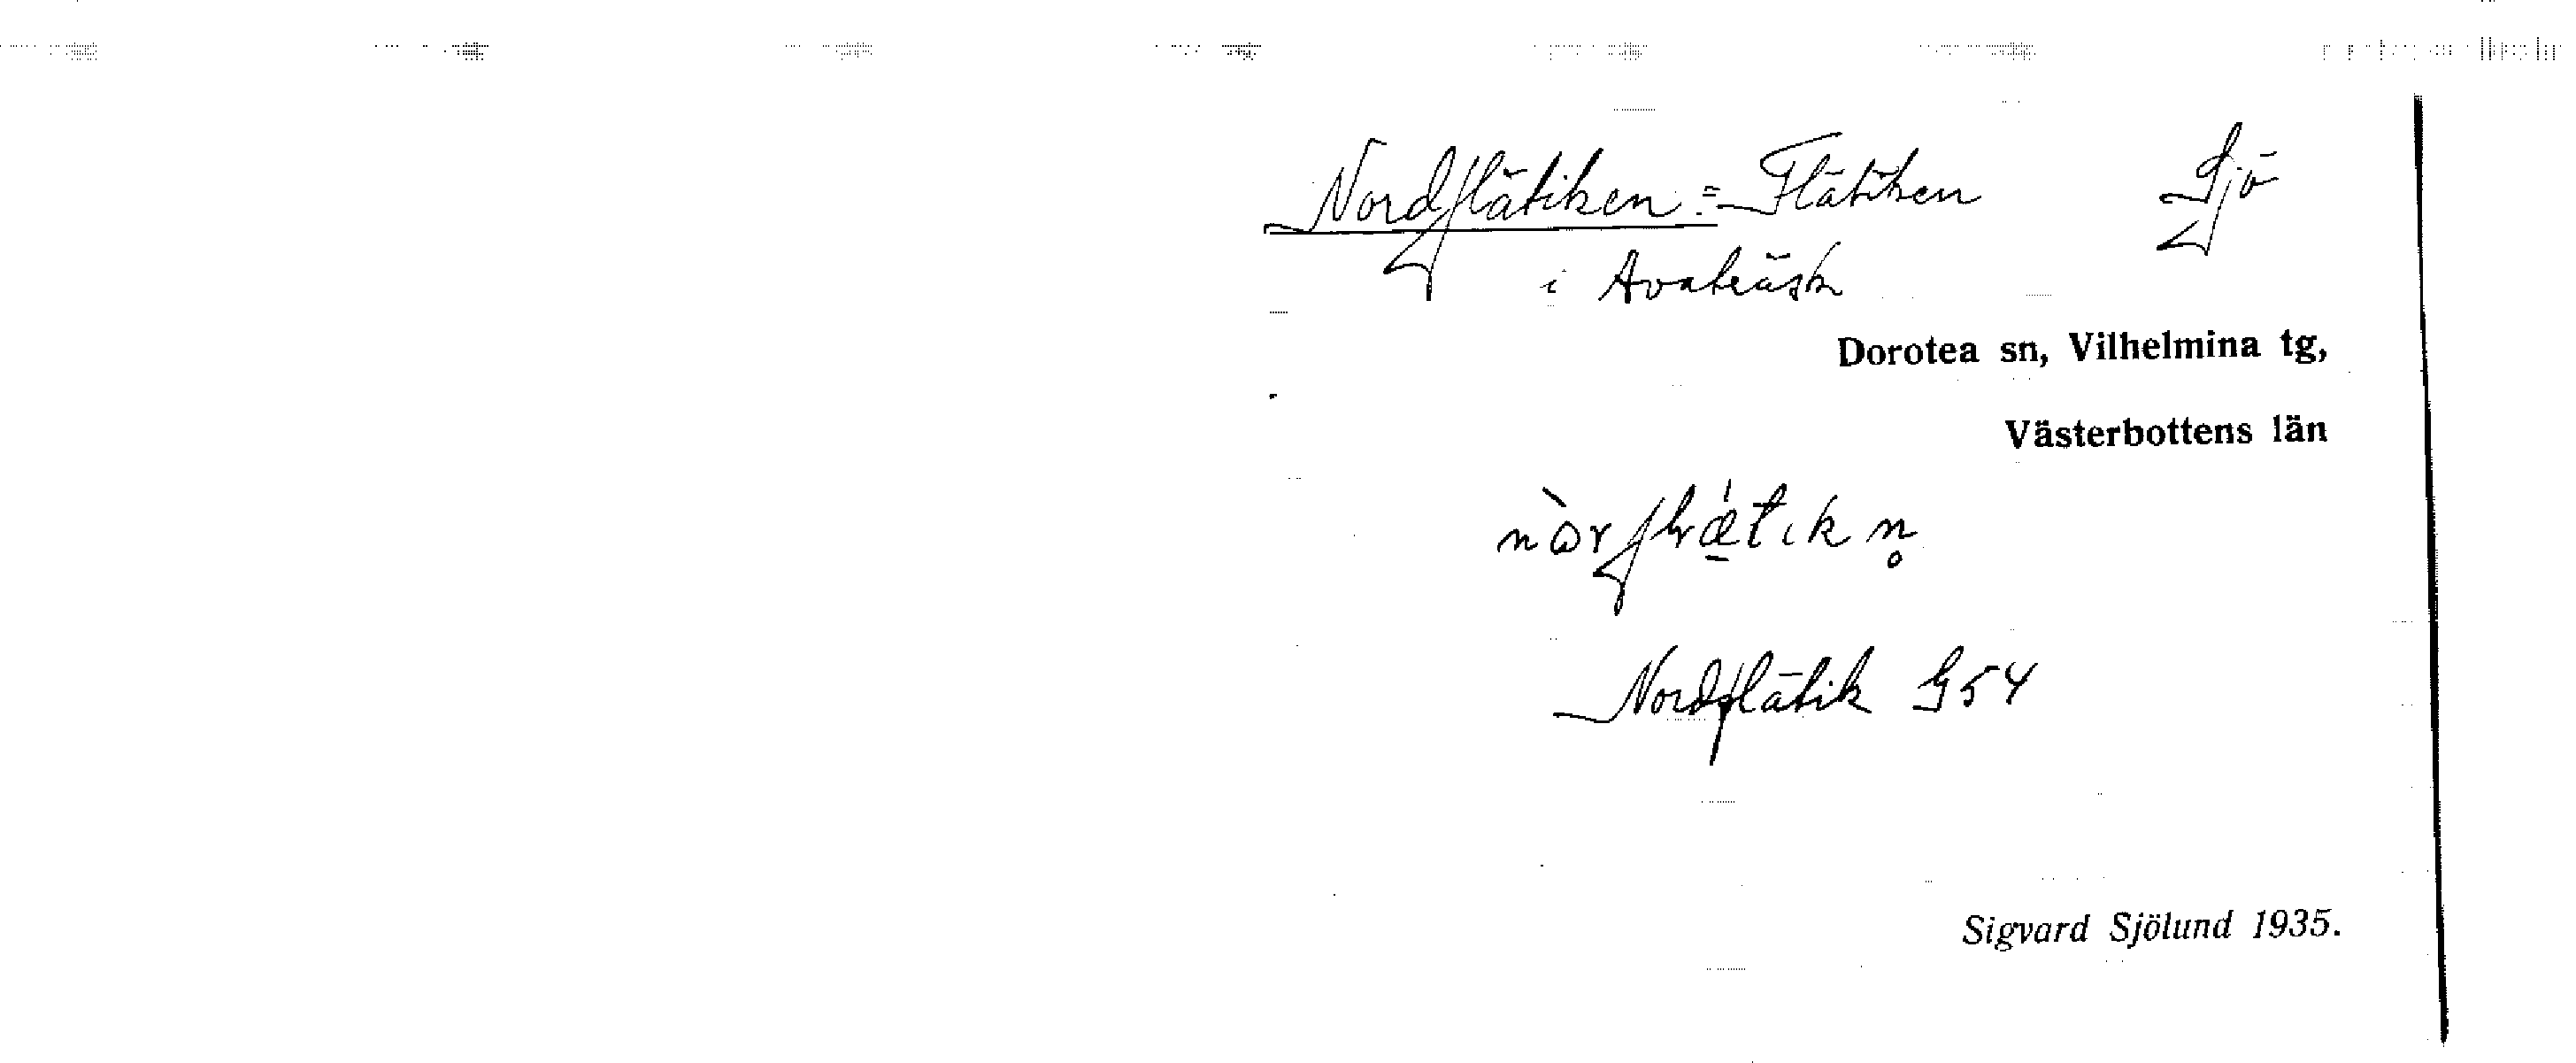 Nordflätiken = Flätiken Sjö
i Avaträsk
Dorotea sn, Vilhelmina tg,
Västerbottens län
Nordflätik G54
Sigvard Sjölund 1935.